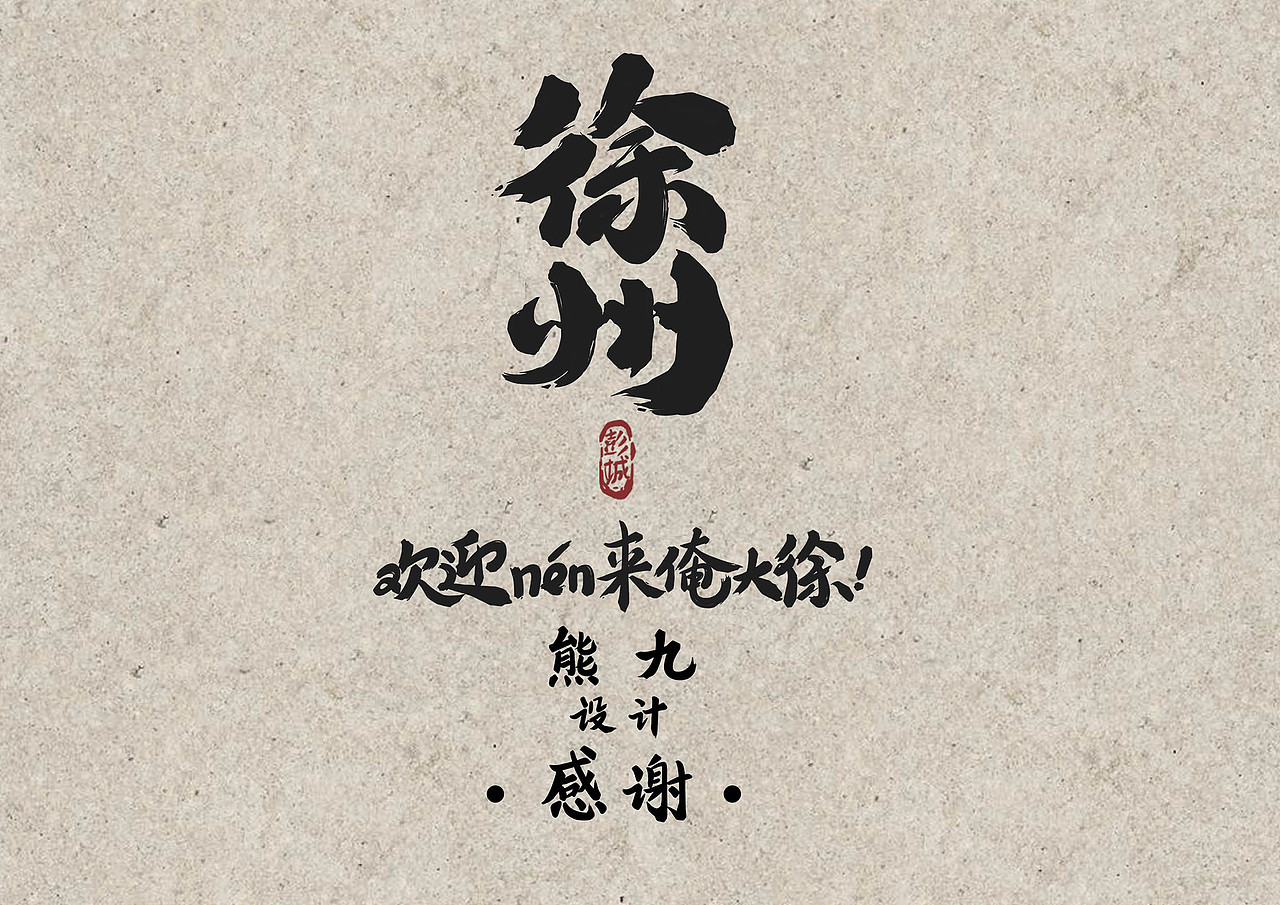 徐
州
彭城
欢迎nén来俺大徐!
熊九
设计
·感谢·